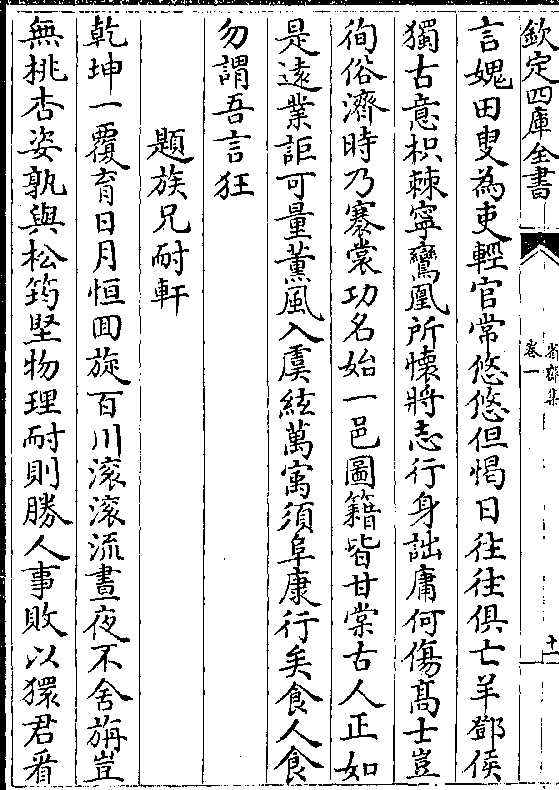 欽定四庫全書
卷一
十一
言媿田叟為吏輕官常悠悠但愒日往往俱亡羊鄧侯
獨古意枳棘寧鸞凰所懐將志行身詘庸何傷髙士豈
徇俗濟時乃褰裳功名始一邑圖籍皆甘棠古人正如
是逺業詎可量薰風入虞絃萬㝢須阜康行矣食人食
勿謂吾言狂
題族兄耐軒
乾坤一覆育日月恒回旋百川滚滚流晝夜不舍旃豈
無桃杏姿孰與松筠堅物理耐則勝人事敗以獧君看